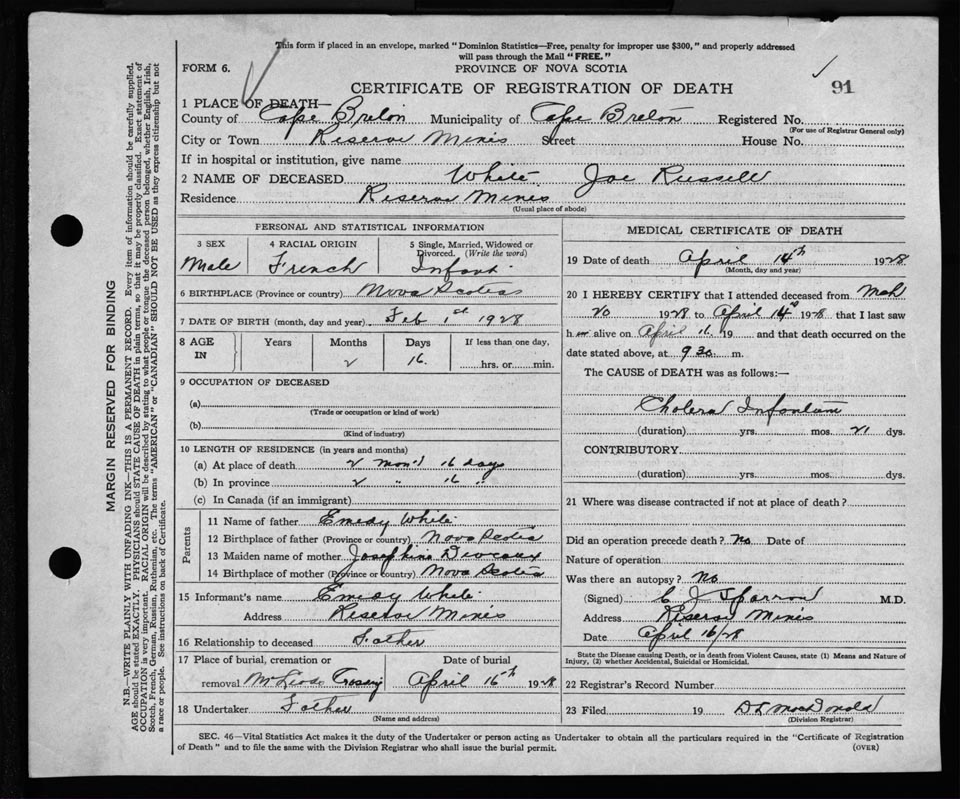 This form if placed in an envelope, marked "Dominion Statistics—Free, penalty for improper use $300," and properly addressed
will pass through the Mail "FREE."
FORM 6.
PROVINCE OF NOVA SCOTIA
CERTIFICATE OF REGISTRATION OF DEATH
91
1 PLACE OF DEATH—
County of Cape Breton Municipality of Cape Breton Registered No.
(For use of Registrar General only)
City or Town Reserve Mines Street House No.
If in hospital or institution, give name
2 NAME OF DECEASED White Joe Russell
Residence Reserve Mines
(Usual place of abode)
PERSONAL AND STATISTICAL INFORMATION
3 SEX 4 RACIAL ORIGIN 5 Single, Married, Widowed or
Divorced. (Write the word)
Male French Infant
6 BIRTHPLACE (Province or country) Nova Scotia
7 DATE OF BIRTH (month, day and year) Feb 1st 1928
8 AGE IN Years Months Days If less than one day,
2 16 hrs. or min.
9 OCCUPATION OF DECEASED
(a)
(Trade or occupation or kind of work)
(b)
(Kind of industry)
10 LENGTH OF RESIDENCE (in years and months)
(a) At place of death 2 mon's 16 days
(b) In province 2 " 16 "
(c) In Canada (if an immigrant)
Parents
11 Name of father Emedy White
12 Birthplace of father (Province or country) Nova Scotia
13 Maiden name of mother Josephine Deveaux
14 Birthplace of mother (Province or country) Nova Scotia
15 Informant's name Emedy White
Address Reserve Mines
16 Relationship to deceased Father
17 Place of burial, cremation or Date of burial
removal McLeods Crossing April 16th 1928
18 Undertaker Father
(Name and address)
MEDICAL CERTIFICATE OF DEATH
19 Date of death April 14th 1928
(Month, day and year)
20 I HEREBY CERTIFY that I attended deceased from Mch
20 1928 to April 14th 1928 that I last saw
h alive on April 16 19 and that death occurred on the
date stated above, at 9 30 m.
The CAUSE of DEATH was as follows:—
Cholera Infantum
(duration) yrs. mos. 21 dys.
CONTRIBUTORY
(duration) yrs. mos. dys.
21 Where was disease contracted if not at place of death?
Did an operation precede death? No Date of
Nature of operation
Was there an autopsy? No
(Signed) C J Sparrow M.D.
Address Reserve Mines
Date April 16/28
State the Disease causing Death, or in death from Violent Causes, state (1) Means and Nature of
Injury, (2) whether Accidental, Suicidal or Homicidal.
22 Registrar's Record Number
23 Filed 19 D R MacDonald
(Division Registrar)
SEC. 46—Vital Statistics Act makes it the duty of the Undertaker or person acting as Undertaker to obtain all the particulars required in the "Certificate of Registration
of Death" and to file the same with the Division Registrar who shall issue the burial permit. (OVER)
MARGIN RESERVED FOR BINDING
N.B.—WRITE PLAINLY WITH UNFADING INK—THIS IS A PERMANENT RECORD. Every item of information should be carefully supplied.
AGE should be stated EXACTLY. PHYSICIANS should STATE CAUSE OF DEATH in plain terms, so that it may be properly classified. Exact statement of
OCCUPATION is very important. RACIAL ORIGIN will be described by stating to what people or tongue the deceased person belonged, whether English, Irish,
Scotch, French, German, Russian, Ruthenian, etc. The terms "AMERICAN" or "CANADIAN" SHOULD NOT BE USED as they express citizenship but not
a race or people. See instructions on back of Certificate.